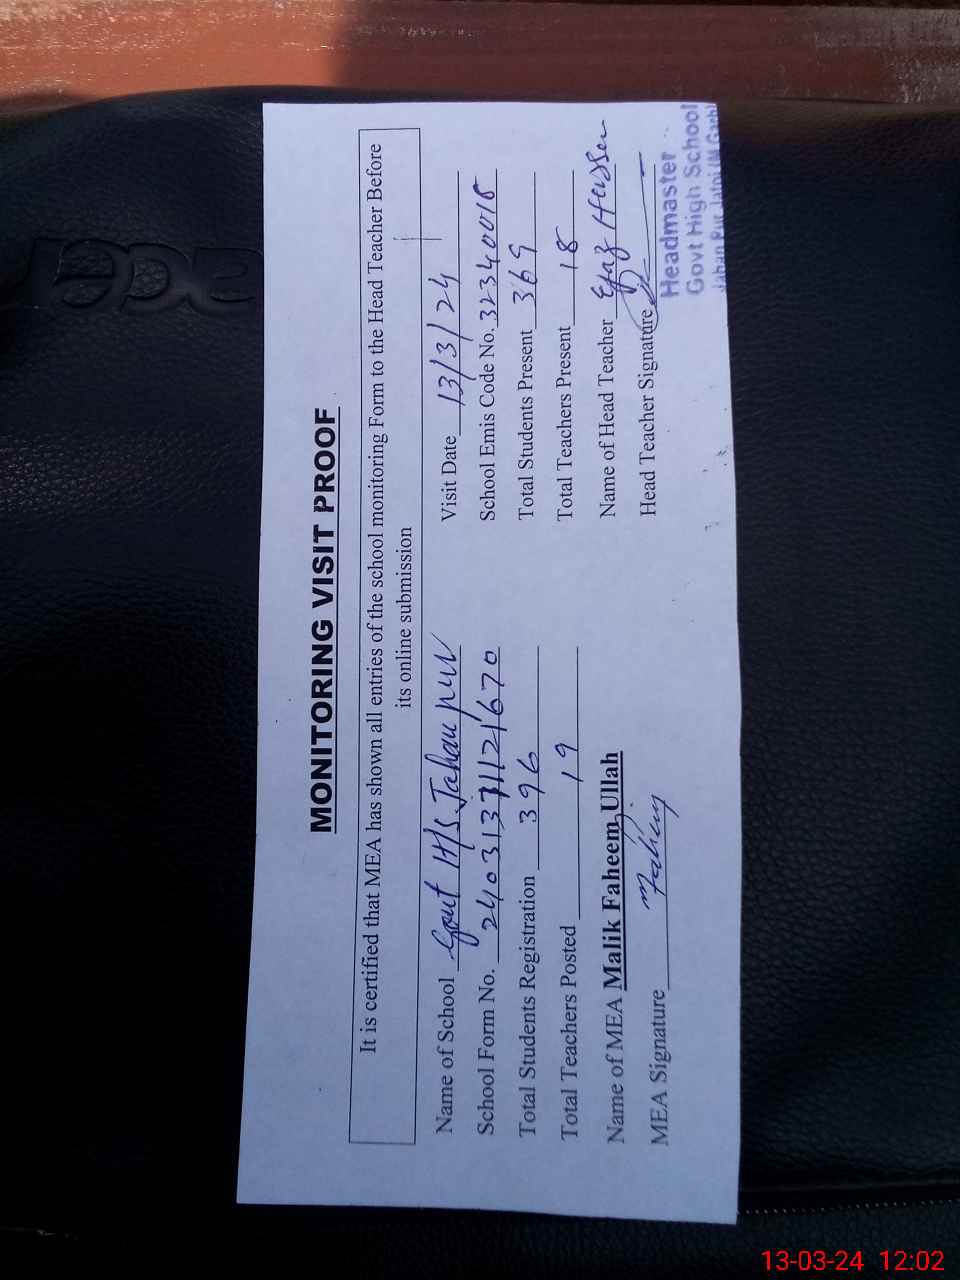 MONITORING VISIT PROOF
It is certified that MEA has shown all entries of the school monitoring Form to the Head Teacher Before
its online submission
Name of School Govt H/S Jahanpur Visit Date 13/3/24
School Form No. 24031371121670 School Emis Code No. 32340018
Total Students Registration 396 Total Students Present 369
Total Teachers Posted 19 Total Teachers Present 18
Name of MEA Malik Faheem Ullah Name of Head Teacher Ejaz Hussen
MEA Signature Faheem Head Teacher Signature
Headmaster
Govt High School
Jahan Pur Jatoi (M.Garh)
13-03-24 12:02